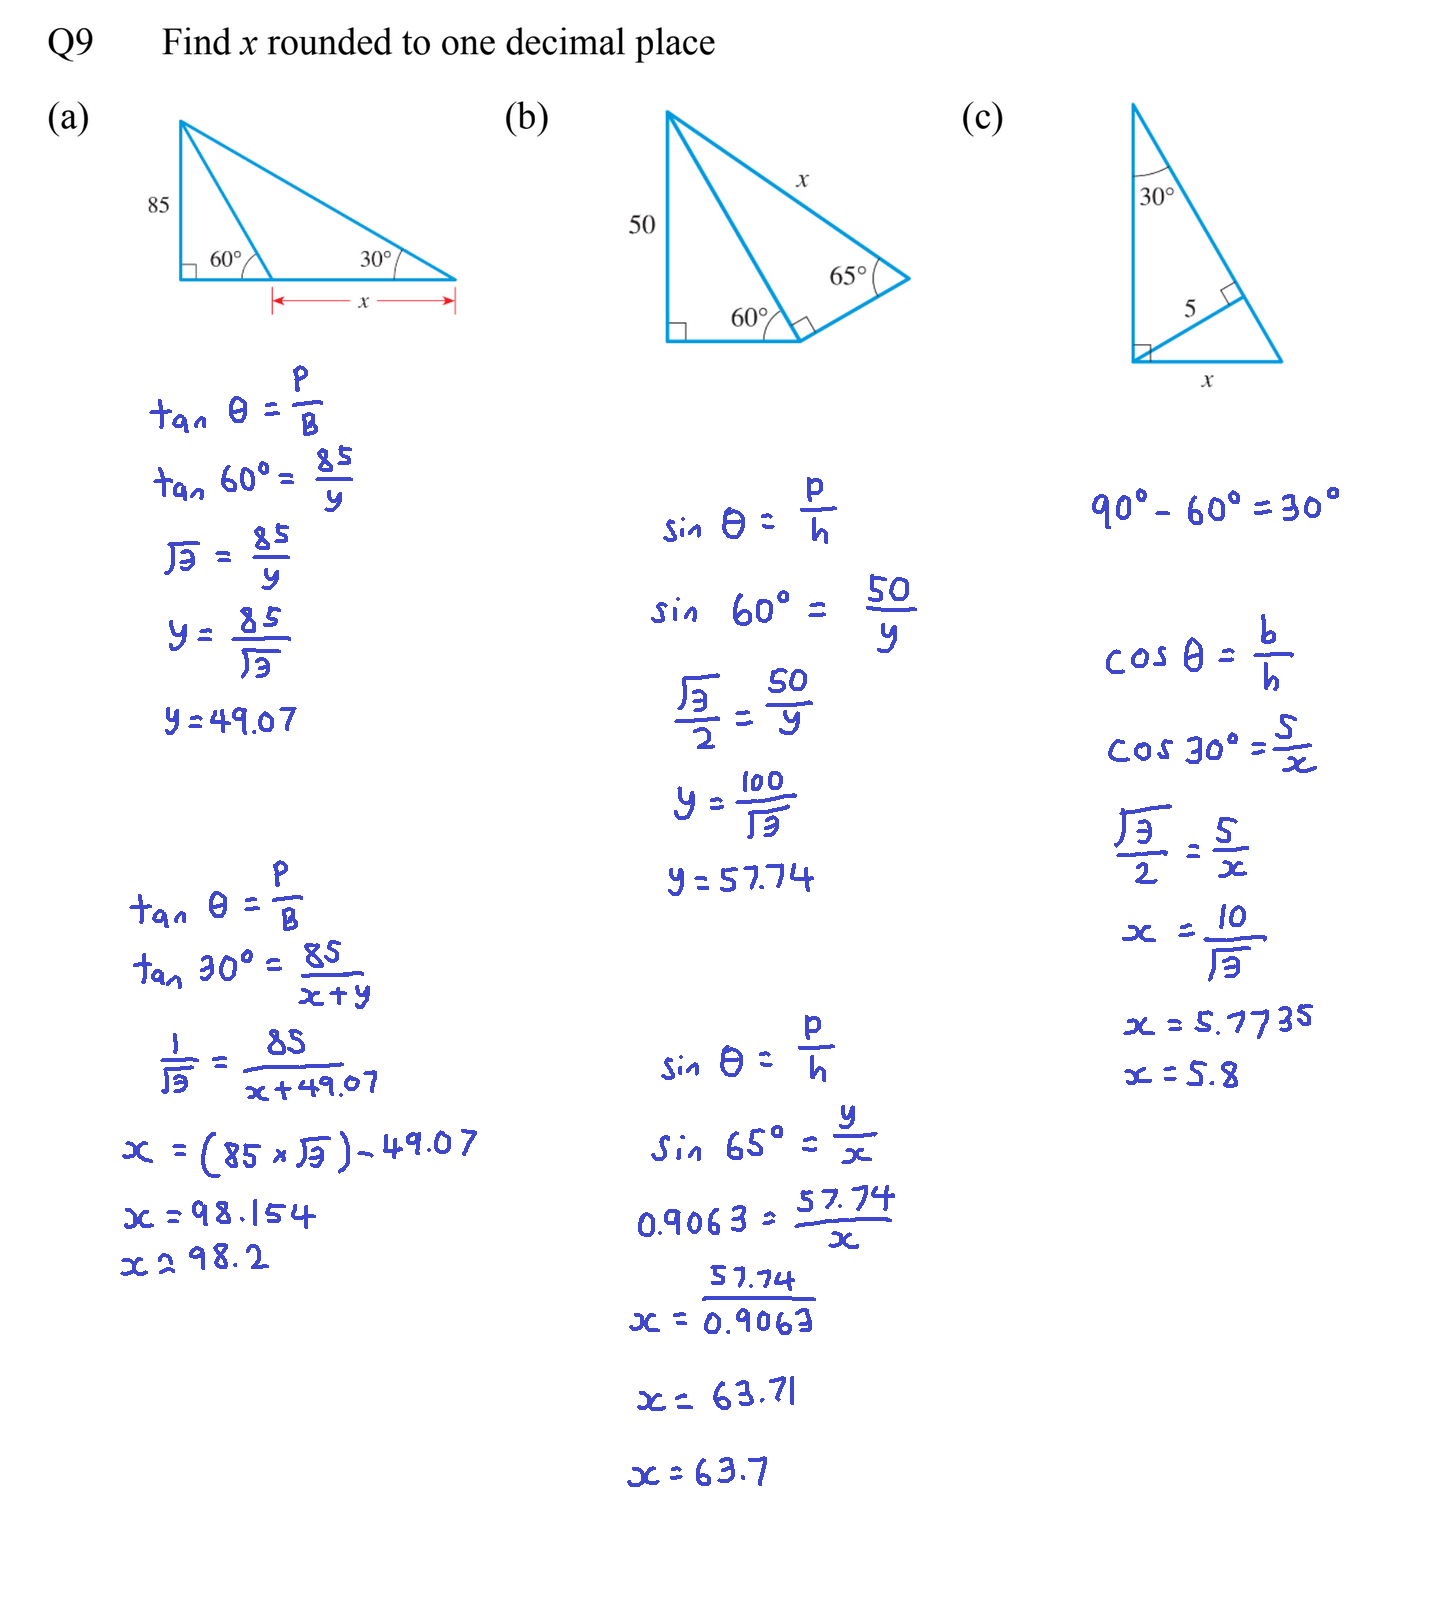 Q9 Find x rounded to one decimal place
(a)
85
60°
30°
x
tan θ = P/B
tan 60° = 85/y
√3 = 85/y
y = 85/√3
y = 49.07
tan θ = P/B
tan 30° = 85/x+y
1/√3 = 85/x+49.07
x = (85 × √3) - 49.07
x = 98.154
x ≃ 98.2
(b)
50
x
65°
60°
sin θ = p/h
sin 60° = 50/y
√3/2 = 50/y
y = 100/√3
y = 57.74
sin θ = p/h
sin 65° = y/x
0.9063 = 57.74/x
x = 57.74/0.9063
x = 63.71
x = 63.7
(c)
30°
5
x
90° - 60° = 30°
cos θ = b/h
cos 30° = 5/x
√3/2 = 5/x
x = 10/√3
x = 5.7735
x = 5.8